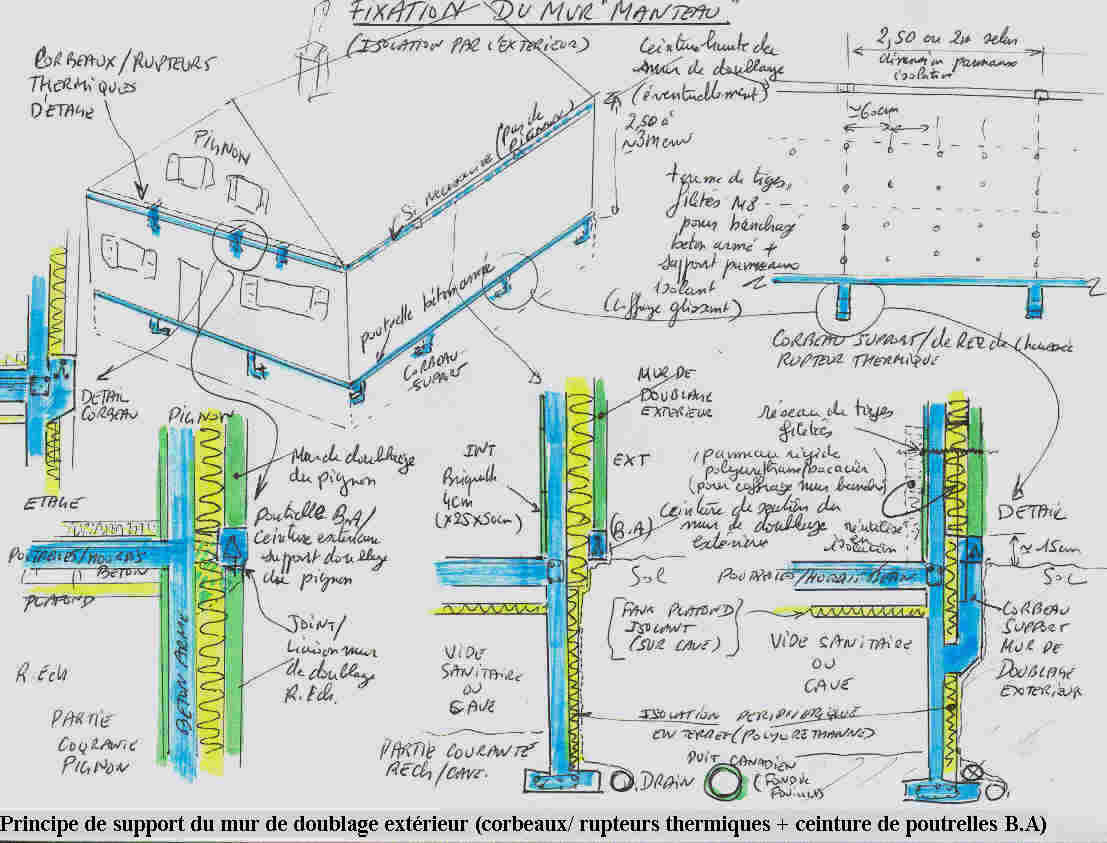 FIXATION DU MUR "MANTEAU"
(ISOLATION PAR L'EXTERIEUR)
CORBEAUX/RUPTEURS
THERMIQUES
D'ETAGE
PIGNON
Si necessaire (pas de
poutrelle béton armée
CORBEAU
SUPORT
Ceinture haute du
mur de doublage
(éventuellement)
2,50 à
3m
2,50 ou 2m selon
dimension panneaux
isolation
≃60cm
trame de tiges
filetés M8
pour banchage
béton armé +
support panneaux
isolant
(coffrage glissant)
CORBEAU SUPPORT/de REZ de Chaussée
RUPTEUR THERMIQUE
DETAIL
CORBEAU
PIGNON
Mur de doublage
du pignon
ETAGE
Poutrelle B.A/
Ceinture exterieure
support doublage
du pignon
POUTRELLES/HOURDIS
BETON
PLAFOND
JOINT/
Liaison mur
de doublage
R.Ech.
R.Ech
BETON ARME
PARTIE
COURANTE
PIGNON
INT
Briques
4cm
(X25X50cm)
MUR DE
DOUBLAGE
EXTERIEUR
EXT
(B.A)
Ceinture de soutien du
mur de doublage
exterieur
Sol
VIDE
SANITAIRE
OU
CAVE
PARTIE COURANTE
RECH/CAVE.
réseau de tiges
filetés
panneau rigide
polyuréthane/bacacier
(pour coffrage mur banché)
réutilisé
en
isolation
DETAIL
≈15cm
Sol
POUTRELLES/HOURDI BETON
[FAUX PLAFOND]
ISOLANT
(SUR CAVE)
VIDE SANITAIRE
OU
CAVE
CORBEAU
SUPPORT
MUR DE
DOUBLAGE
EXTERIEUR
ISOLATION PERIPHERIQUE
ENTERRE (POLYURETHANNE)
DRAIN
PUIT CANADIEN
(FOND DE
FOUILLES
Principe de support du mur de doublage extérieur (corbeaux/ rupteurs thermiques + ceinture de poutrelles B.A)